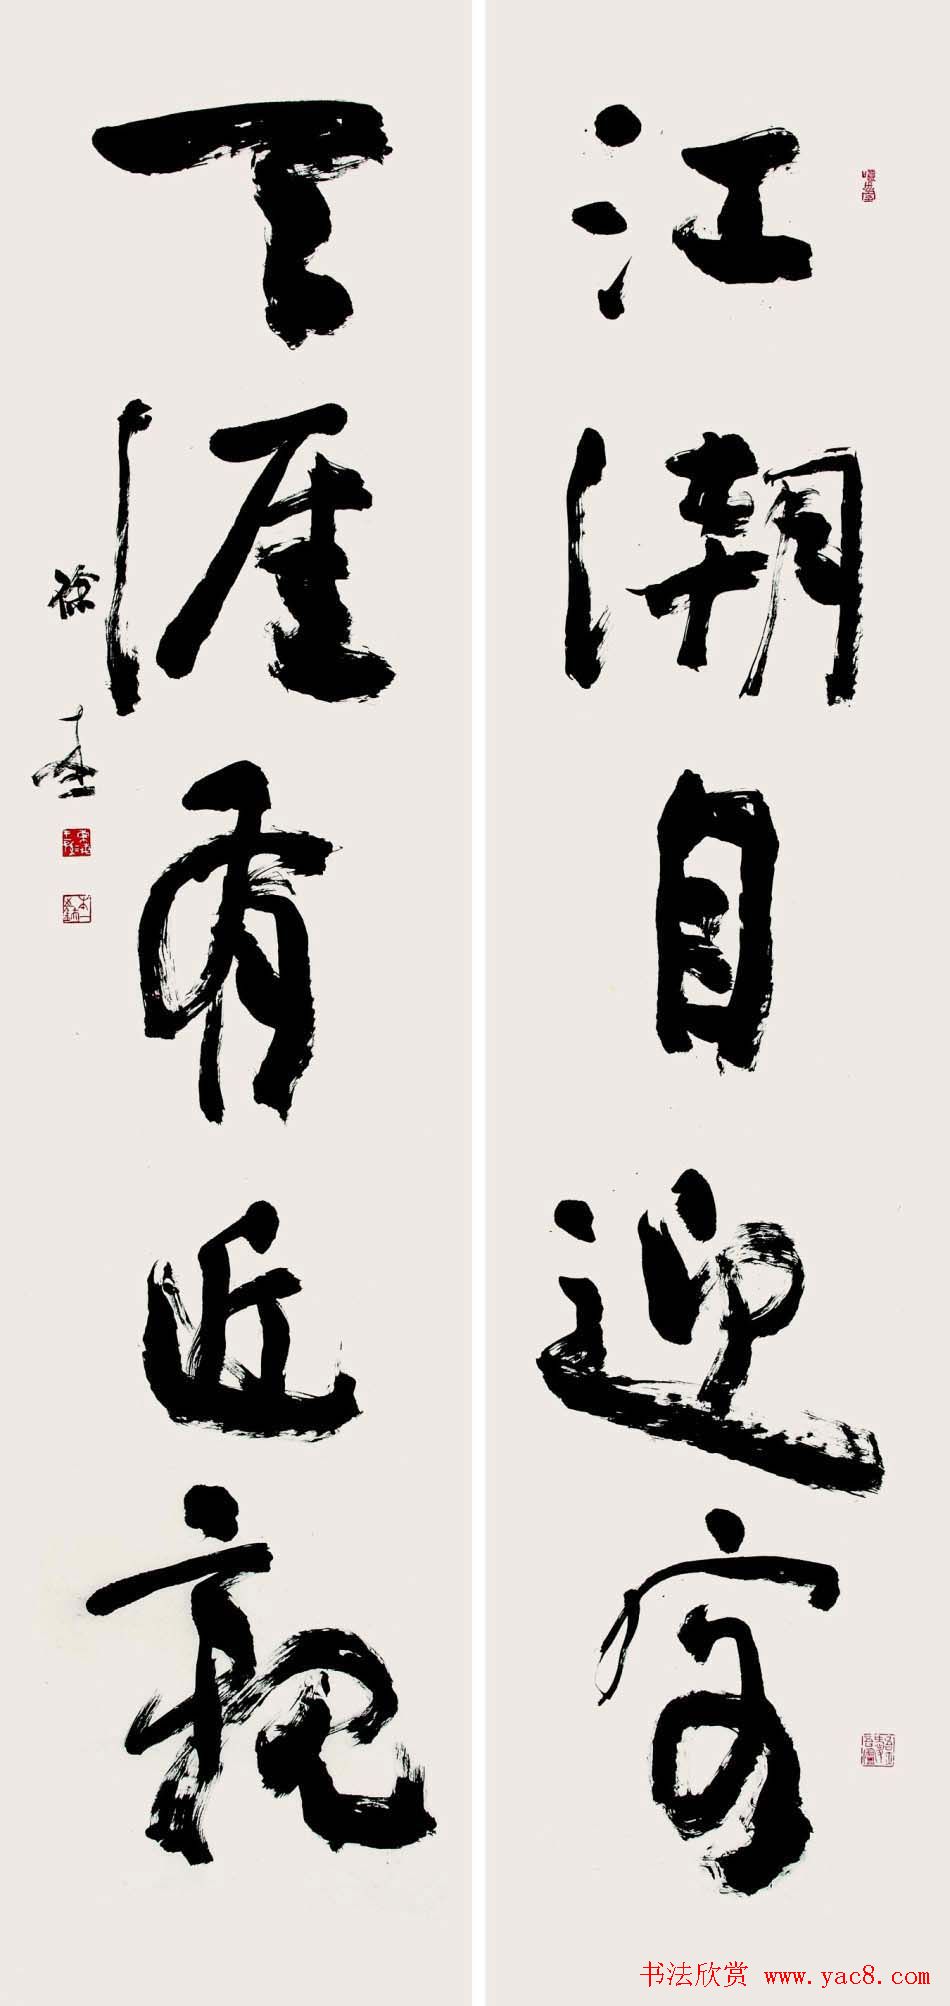 江潮自迎客
天涯有近亲
徐
书法欣赏 www.yac8.com